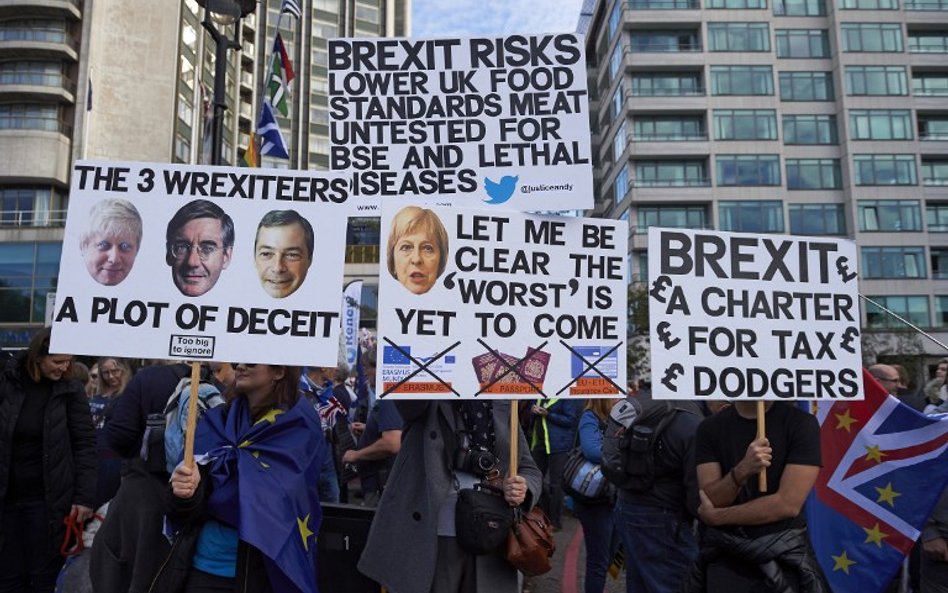 BREXIT RISKS
LOWER UK FOOD
STANDARDS MEAT
UNTESTED FOR
BSE AND LETHAL
DISEASES
@justiceandy
THE 3 WREXITEERS
A PLOT OF DECEIT
Too big
to ignore
LET ME BE
CLEAR THE
'WORST' IS
YET TO COME
ERASMUS
E-111
BREXIT£
£A CHARTER
£ FOR TAX £
£ DODGERS
Renew
1